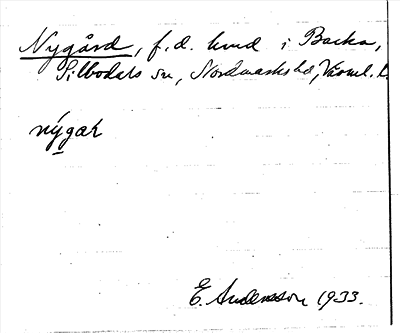 Nygård, f.d. hmd i Backa,
Silbodals sn, Nordmarks hd, Värml. l.
nýgaʀ
E. Andersson 1933.